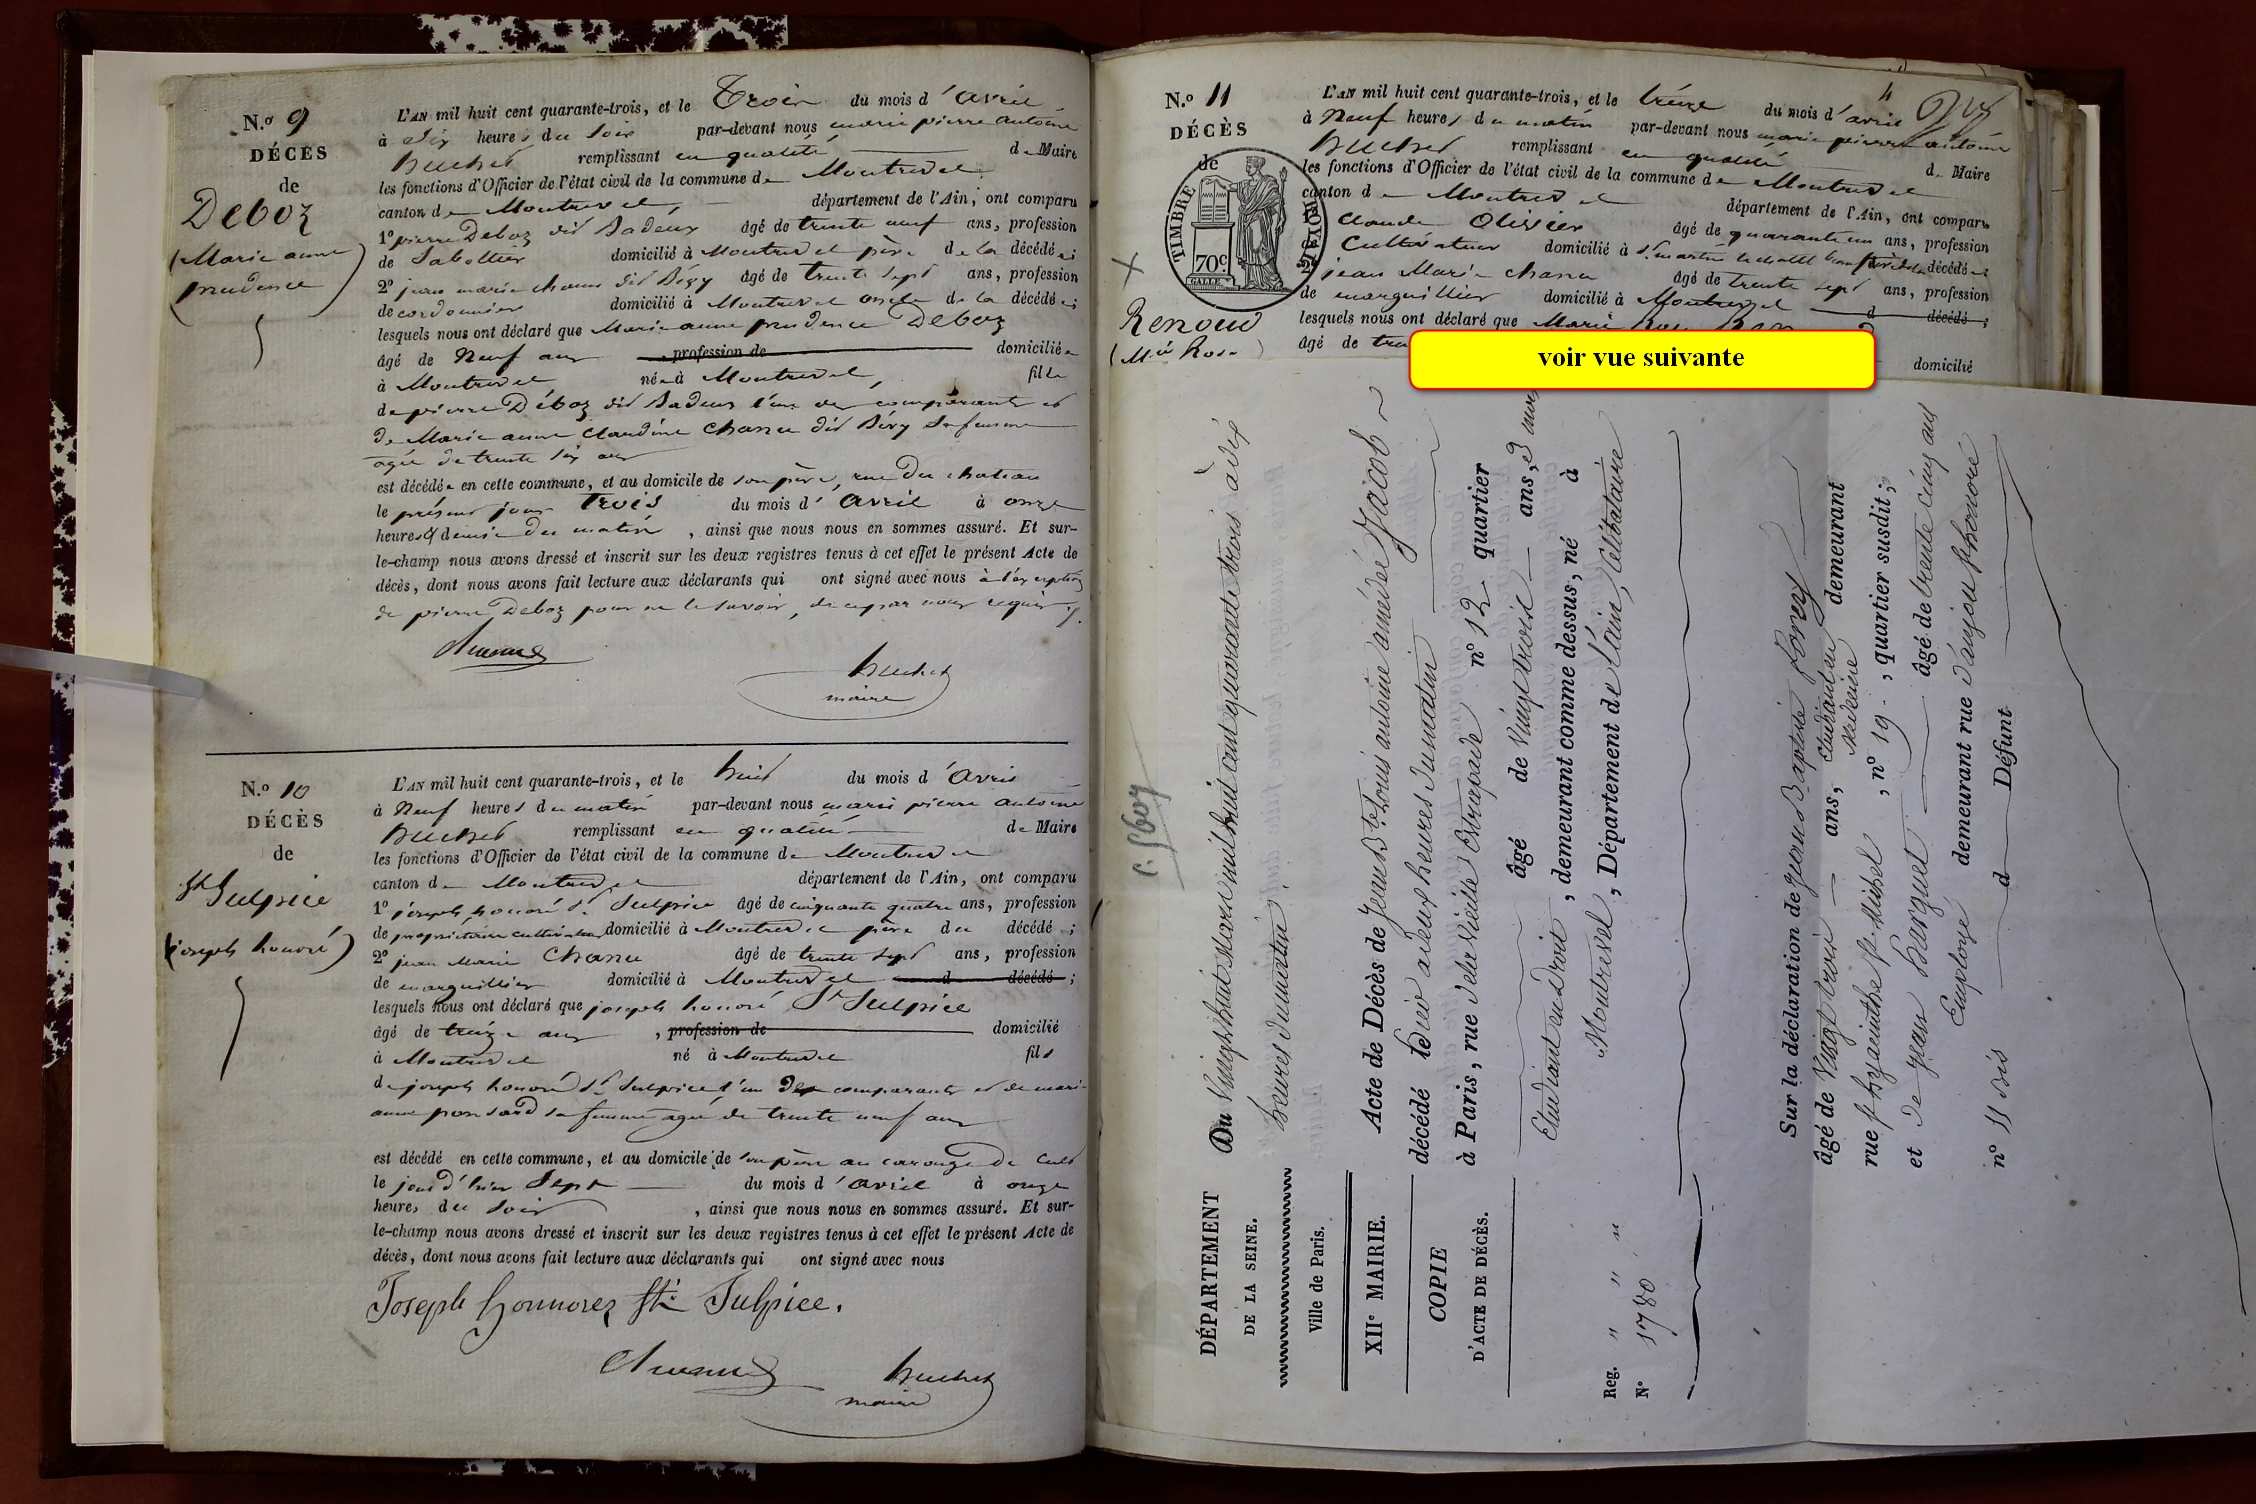 N.º 9
DÉCÈS
de
Deboz
(Marie anne
prudence)
L'AN mil huit cent quarante-trois, et le Trois du mois d'avril
à Six heures du Soir par-devant nous marie pierre antoine
huchet remplissant en qualité de Maire
les fonctions d'Officier de l'état civil de la commune de Montrevel
canton de Montrevel, département de l'Ain, ont comparu
1º pierre Deboz dit Badeux âgé de trente neuf ans, profession
de Sabottier domicilié à Montrevel père de la décédée;
2º jean marie chanu dit Bévy âgé de trente sept ans, profession
de cordonnier domicilié à Montrevel oncle de la décédée;
lesquels nous ont déclaré que Marie anne prudence Deboz
âgé de Neuf ans profession de domiciliée
à Montrevel née à Montrevel, fille
de pierre Déboz dit Badeux l'un des comparants et
de Marie anne Claudine Chanu dit Bévy Sa femme
agée de trente Six ans
est décédée en cette commune, et au domicile de son père, rue du chateau
le présent jour Trois du mois d'avril à onze
heures & demie du matin, ainsi que nous nous en sommes assuré. Et sur-
le-champ nous avons dressé et inscrit sur les deux registres tenus à cet effet le présent Acte de
décès, dont nous avons fait lecture aux déclarants qui ont signé avec nous à l'exception
de pierre Deboz pour ne le savoir, de ce par nous requis.
huchet
maire
N.º 10
DÉCÈS
de
St Sulpice
(joseph honoré)
L'AN mil huit cent quarante-trois, et le huit du mois d'Avril
à Neuf heures du matin par-devant nous marie pierre antoine
huchet remplissant en qualité de Maire
les fonctions d'Officier de l'état civil de la commune de Montrevel
canton de Montrevel département de l'Ain, ont comparu
1º joseph honoré St Sulpice âgé de cinquante quatre ans, profession
de propriétaire cultivateur domicilié à Montrevel père du décédé;
2º jean Marie Chanu âgé de trente sept ans, profession
de marguillier domicilié à Montrevel d décédé;
lesquels nous ont déclaré que joseph honoré St Sulpice
âgé de treize ans, profession de domicilié
à Montrevel né à Montrevel fils
de joseph honoré St Sulpice l'un des comparants et de marie
anne ponsard sa femme agée de trente neuf ans
est décédé en cette commune, et au domicile de son père au carouge de Cuet
le jour d'hier Sept du mois d'avril à onze
heures du Soir, ainsi que nous nous en sommes assuré. Et sur-
le-champ nous avons dressé et inscrit sur les deux registres tenus à cet effet le présent Acte de
décès, dont nous avons fait lecture aux déclarants qui ont signé avec nous
Joseph honnorez St Sulpice.
huchet
maire
4
N.º 11
DÉCÈS
de
TIMBRE ROYAL
70c
Renoud
(Mie Rose)
L'AN mil huit cent quarante-trois, et le treize du mois d'avril
à Neuf heures du matin par-devant nous marie pierre antoine
huchet remplissant en qualité de Maire
les fonctions d'Officier de l'état civil de la commune de Montrevel
canton de Montrevel département de l'Ain, ont comparu
Claude Olivier âgé de quarante un ans, profession
de Cultivateur domicilié à St martin le chatel décédée
2º jean Marie chanu âgé de trente sept ans, profession
de marguillier domicilié à Montrevel d décédé;
lesquels nous ont déclaré que Marie Rose
âgé de domicilié
voir vue suivante
DÉPARTEMENT
DE LA SEINE.
Ville de Paris.
XIIe MAIRIE.
COPIE
D'ACTE DE DÉCÈS.
Reg. " " "
Nº 1780
Du Vingt huit Mars mil huit cent quarante trois à dix
heures du matin
Acte de Décès de Jean Bte Louis antoine amédée Jacob
décédé hier à deux heures du matin
à Paris, rue de la Vieille Estrapade nº 12 quartier
âgé de Vingt trois ans, 3 mois
Etudiant en droit, demeurant comme dessus, né à
Montrevel, Département de l'ain, Célibataire
Sur la déclaration de Jean Baptiste Forey
âgé de Vingt trois ans, étudiant en médecine demeurant
rue St hyacinthe St Michel, nº 19, quartier susdit;
et de Jean Barquet âgé de trente cinq ans
Employé demeurant rue d'anjou St honoré
nº 11 bis d Défunt